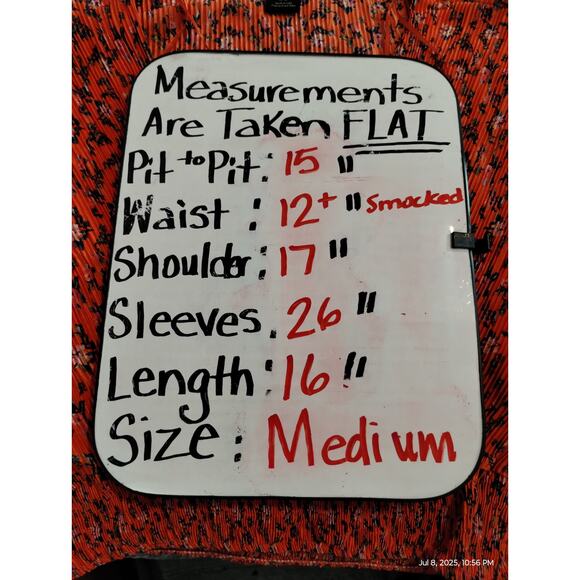 Measurements
Are Taken FLAT
Pit to Pit: 15"
Waist: 12+" Smocked
Shoulder: 17"
Sleeves. 26"
Length: 16"
Size: Medium
Jul 8, 2025, 10:56 PM